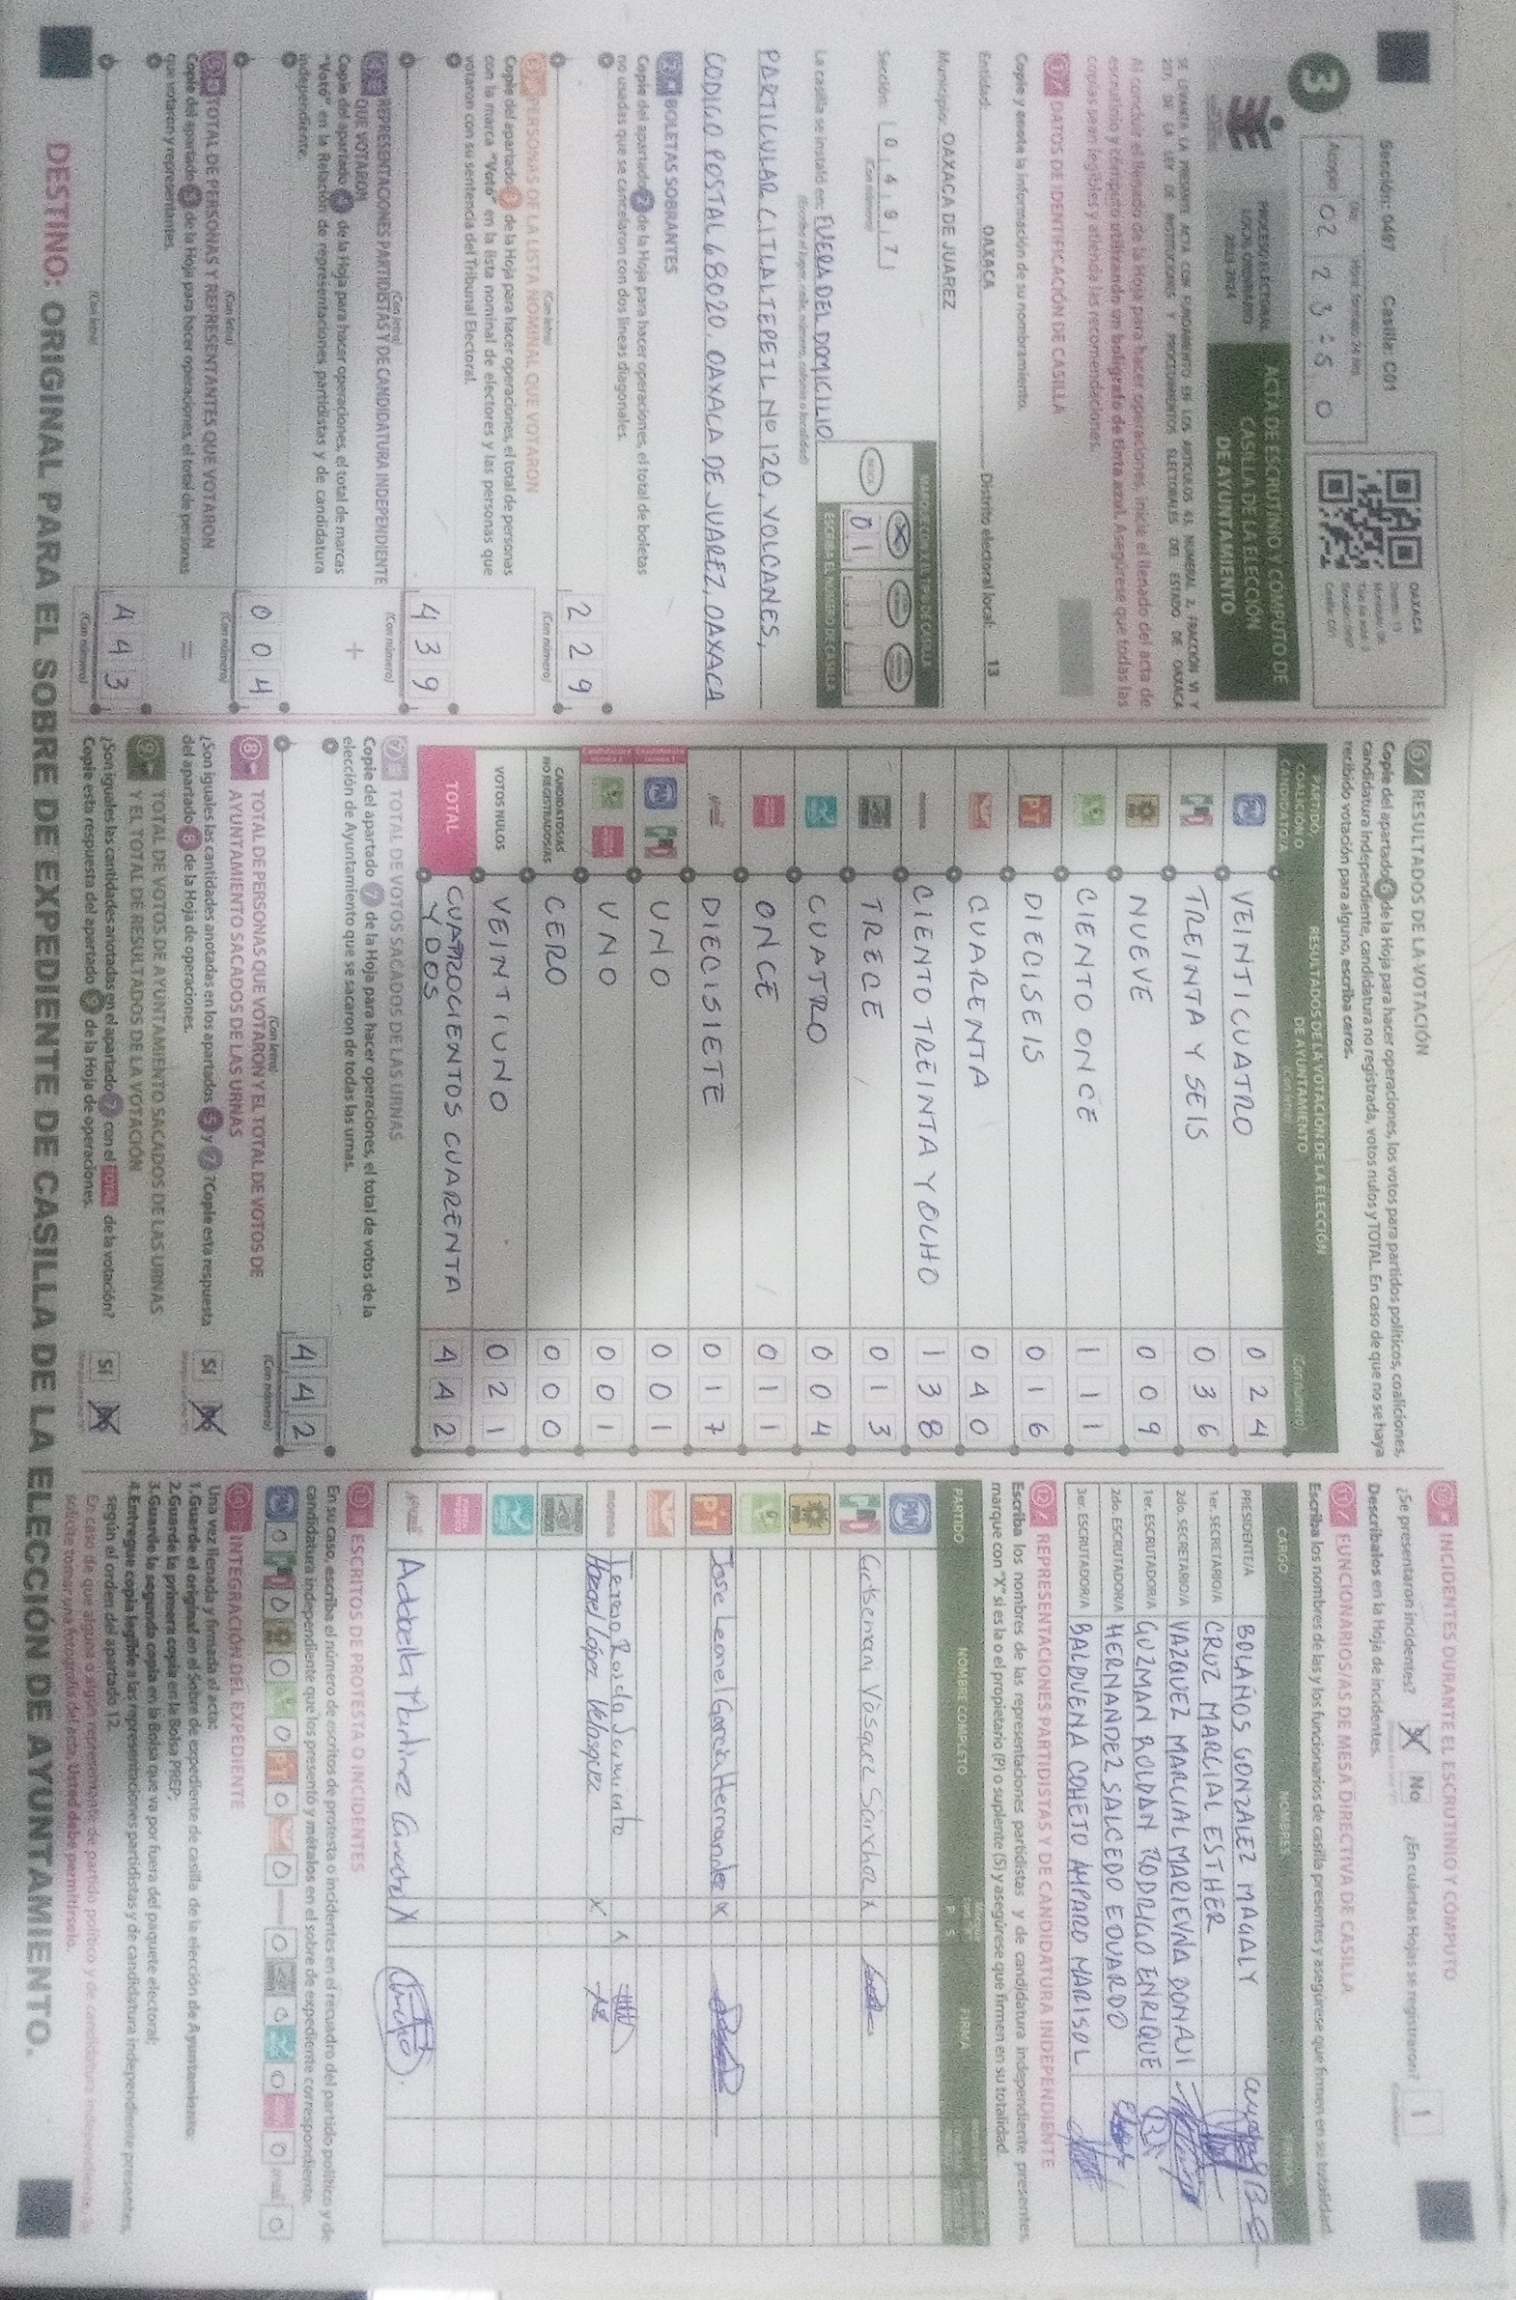 Sección: 0497 Casilla: C01
3
Acopio 02 23:50
PROCESO ELECTORAL
LOCAL ORDINARIO
2023-2024
ACTA DE ESCRUTINIO Y CÓMPUTO DE
CASILLA DE LA ELECCIÓN
DE AYUNTAMIENTO
OAXACA
Al concluir el llenado de la Hoja para hacer operaciones, inicie el llenado del acta de
escrutinio y cómputo utilizando un bolígrafo de tinta azul. Asegúrese que todas las
copias sean legibles y atienda las recomendaciones.
1 DATOS DE IDENTIFICACIÓN DE CASILLA
Copie y anote la información de su nombramiento.
Entidad: OAXACA Distrito electoral local: 13
Municipio: OAXACA DE JUAREZ
Sección: 0497
(Con número)
MARQUE CON X EL TIPO DE CASILLA
ESCRIBA EL NÚMERO DE CASILLA
01
La casilla se instaló en: FUERA DEL DOMICILIO
(Escriba el lugar, calle, número, colonia o localidad)
PARTICULAR CITLALTEPETL Nº 120, VOLCANES,
CODIGO POSTAL 68020, OAXACA DE JUAREZ, OAXACA
2 BOLETAS SOBRANTES
Copie del apartado 2 de la Hoja para hacer operaciones, el total de boletas
no usadas que se cancelaron con dos líneas diagonales.
229
(Con letra) (Con número)
3 PERSONAS DE LA LISTA NOMINAL QUE VOTARON
Copie del apartado 3 de la Hoja para hacer operaciones, el total de personas
con la marca "Votó" en la lista nominal de electores y las personas que
votaron con su sentencia del Tribunal Electoral.
439
(Con letra) (Con número)
4 REPRESENTACIONES PARTIDISTAS Y DE CANDIDATURA INDEPENDIENTE
QUE VOTARON
+
Copie del apartado 4 de la Hoja para hacer operaciones, el total de marcas
"Votó" en la Relación de representaciones partidistas y de candidatura
independiente.
004
(Con letra) (Con número)
5 TOTAL DE PERSONAS Y REPRESENTANTES QUE VOTARON
=
Copie del apartado 5 de la Hoja para hacer operaciones, el total de personas
que votaron y representantes.
443
(Con letra) (Con número)
6 RESULTADOS DE LA VOTACIÓN
Copie del apartado 6 de la Hoja para hacer operaciones, los votos para partidos políticos, coaliciones,
candidatura independiente, candidatura no registrada, votos nulos y TOTAL. En caso de que no se haya
recibido votación para alguno, escriba ceros.
PARTIDO, COALICIÓN O CANDIDATO/A
RESULTADOS DE LA VOTACIÓN DE LA ELECCIÓN
DE AYUNTAMIENTO
(Con letra) (Con número)
PAN VEINTICUATRO 024
PRI TREINTA Y SEIS 036
NUEVE 009
CIENTO ONCE 111
PT DIECISEIS 016
CUARENTA 040
morena CIENTO TREINTA Y OCHO 138
TRECE 013
CUATRO 004
ONCE 011
DIECISIETE 017
PAN PRI UNO 001
UNO 001
CANDIDATOS/AS
NO REGISTRADOS/AS CERO 000
VOTOS NULOS VEINTIUNO 021
TOTAL CUATROCIENTOS CUARENTA
Y DOS 442
7 TOTAL DE VOTOS SACADOS DE LAS URNAS
Copie del apartado 7 de la Hoja para hacer operaciones, el total de votos de la
elección de Ayuntamiento que se sacaron de todas las urnas.
442
(Con letra) (Con número)
8 TOTAL DE PERSONAS QUE VOTARON Y EL TOTAL DE VOTOS DE
AYUNTAMIENTO SACADOS DE LAS URNAS
¿Son iguales las cantidades anotadas en los apartados 5 y 7? Copie esta respuesta
del apartado 8 de la Hoja de operaciones.
SÍ
9 TOTAL DE VOTOS DE AYUNTAMIENTO SACADOS DE LAS URNAS
Y EL TOTAL DE RESULTADOS DE LA VOTACIÓN
¿Son iguales las cantidades anotadas en el apartado 7 con el TOTAL de la votación?
Copie esta respuesta del apartado 9 de la Hoja de operaciones.
SÍ
10 INCIDENTES DURANTE EL ESCRUTINIO Y CÓMPUTO
¿Se presentaron incidentes? No ¿En cuántas Hojas se registraron? 1
Descríbalos en la Hoja de incidentes.
11 FUNCIONARIOS/AS DE MESA DIRECTIVA DE CASILLA
Escriba los nombres de las y los funcionarios de casilla presentes y asegúrese que firmen en su totalidad.
CARGO NOMBRES
PRESIDENTE/A BOLAÑOS GONZALEZ MAGALY
1er. SECRETARIO/A CRUZ MARCIAL ESTHER
2do. SECRETARIO/A VAZQUEZ MARCIAL MARIEVNA DONAJI
1er. ESCRUTADOR/A GUZMAN ROLDAN RODRIGO ENRIQUE
2do. ESCRUTADOR/A HERNANDEZ SALCEDO EDUARDO
3er. ESCRUTADOR/A BALDUENA COHETO AMPARO MARISOL
12 REPRESENTACIONES PARTIDISTAS Y DE CANDIDATURA INDEPENDIENTE
Escriba los nombres de las representaciones partidistas y de candidatura independiente presentes,
marque con "X" si es la o el propietario (P) o suplente (S) y asegúrese que firmen en su totalidad.
PARTIDO NOMBRE COMPLETO P S FIRMA
PAN
PRI Getsemani Vásquez Sánchez X
PT Jose Leonel García Hernandez X
morena Hazael López Velasquez X
X
13 ESCRITOS DE PROTESTA O INCIDENTES
En su caso, escriba el número de escritos de protesta o incidentes en el recuadro del partido político y de
candidatura independiente que los presentó y métalos en el sobre de expediente correspondiente.
14 INTEGRACIÓN DEL EXPEDIENTE
Una vez llenada y firmada el acta:
1.Guarde el original en el Sobre de expediente de casilla de la elección de Ayuntamiento;
2.Guarde la primera copia en la Bolsa PREP;
3.Guarde la segunda copia en la Bolsa que va por fuera del paquete electoral;
4.Entregue copia legible a las representaciones partidistas y de candidatura independiente presentes,
según el orden del apartado 12.
En caso de que alguna o algún representante de partido político y de candidatura independiente, le
solicite tomar una fotografía del acta, Usted debe permitírselo.
DESTINO: ORIGINAL PARA EL SOBRE DE EXPEDIENTE DE CASILLA DE LA ELECCIÓN DE AYUNTAMIENTO.